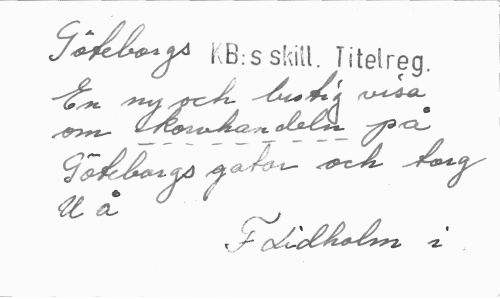 Göteborgs KB:s skill. Titelreg.
En ny och lustig visa
om korvhandeln på
Göteborgs gator och torg
U å
F Lidholm i